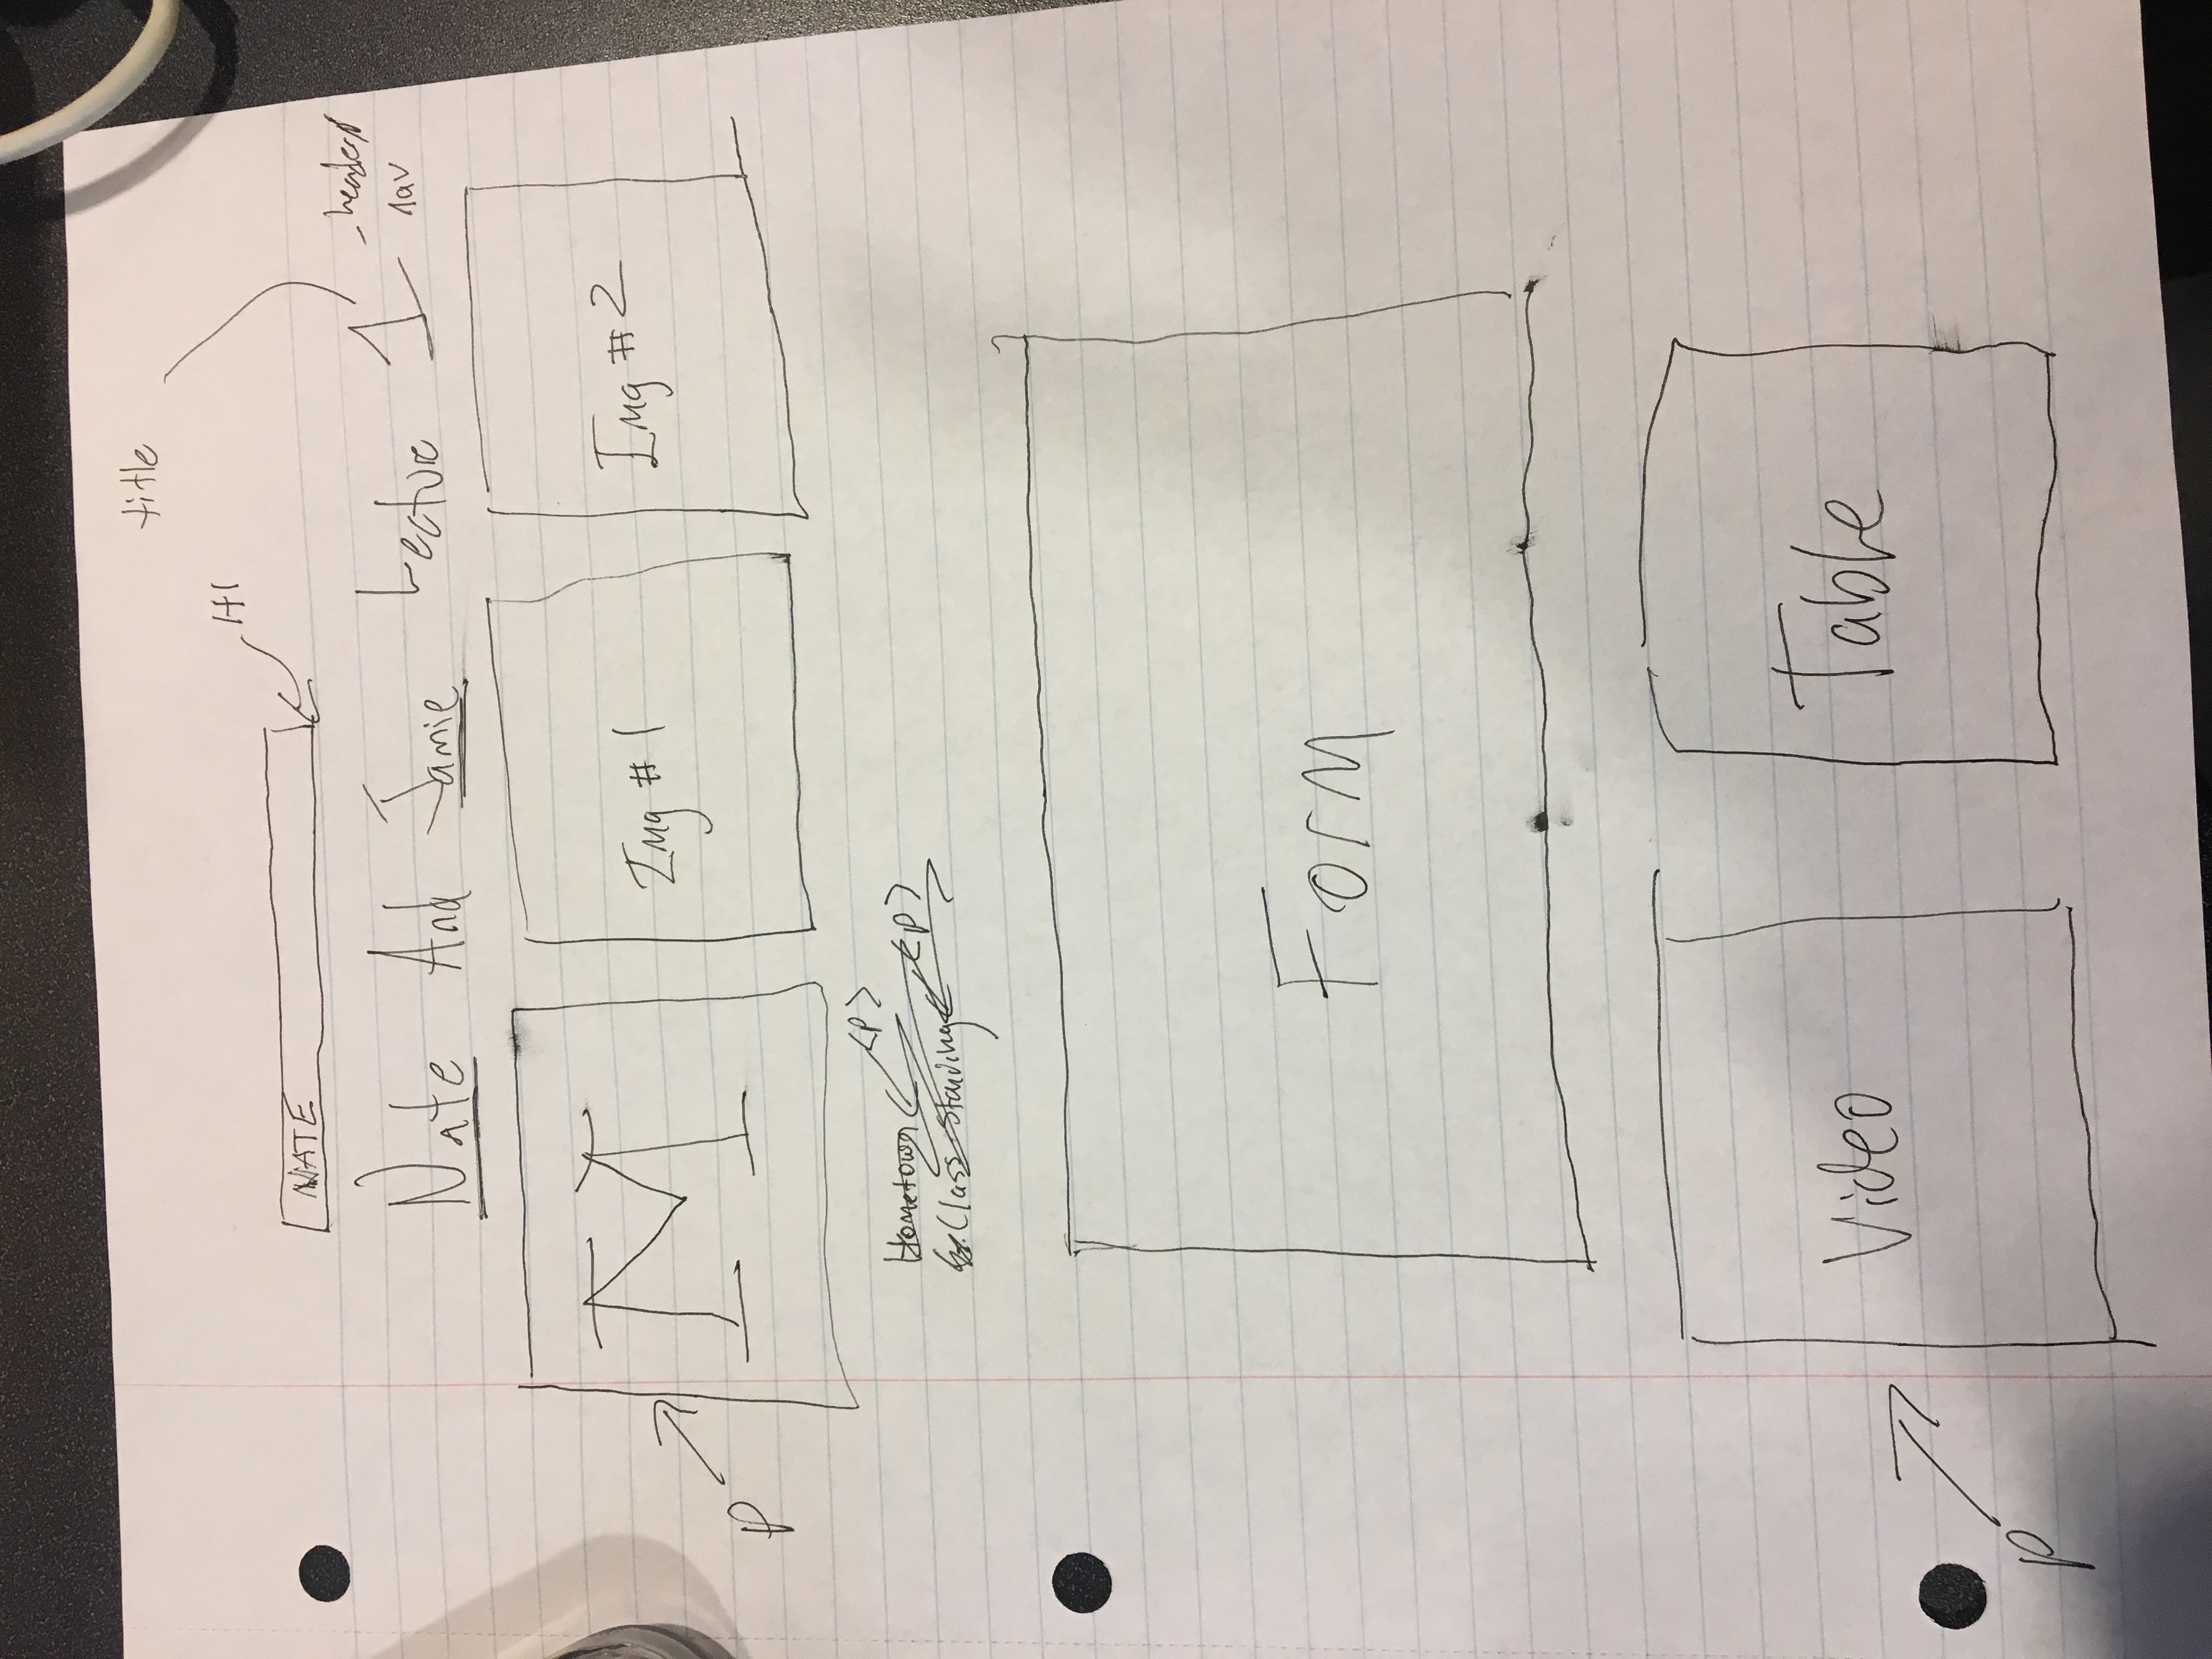 title
H1
NATE
Nate And Jamie Lecture 1
header/
nav
M
Img #1
Img #2
P
<P>
Hometown
<P>
Class standing
Form
Video
Table
P